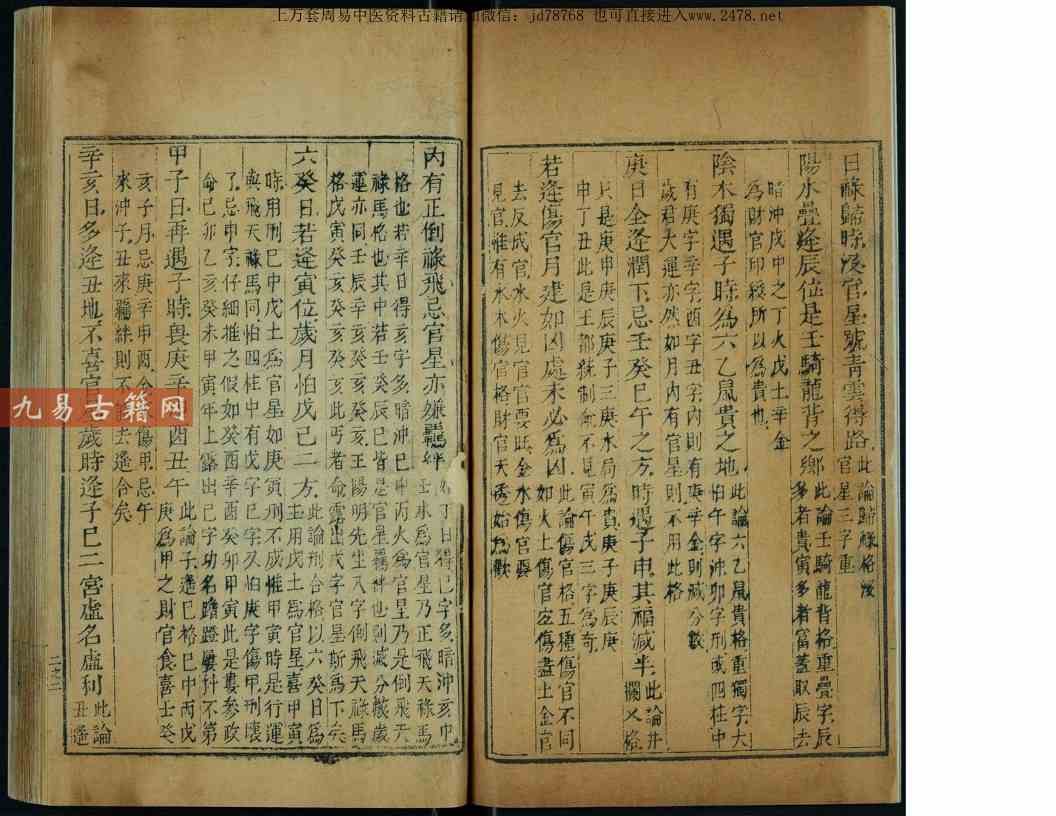 上万套周易中医资料古籍请加微信：jd78768 也可直接进入www.2478.net
日祿歸時沒官星號青雲得路此論歸祿格沒官星三字重
陽水疊逢辰位是壬騎龍背之鄉此論壬騎龍背格重疊字辰多者貴寅多者富蓋取辰去
暗沖戌中之丁火戊土辛金
為財官印綬所以為貴也
陰木獨遇子時為六乙鼠貴之地此論六乙鼠貴格重獨字大怕午字沖卯字刑或四柱中
有庚字辛字酉字丑字內則有庚辛金則減分數
歲君大運亦然如月內有官星則不用此格
庚日全逢潤下忌壬癸巳午之方時遇子申其福減半此論井欄叉格
只是庚申庚辰庚子三庚水局為貴庚子庚辰庚
申丁丑此是王都統制命不見寅午戌三字為奇
若逢傷官月建如凶處未必為凶此論傷官格五種傷官不同如火土傷官宜傷盡土金官
去反成官水火見官官要旺金水傷官要
見官惟有水木傷官格財官兩透始為歡
內有正倒祿飛忌官星亦嫌羈絆
格也若辛日得亥字多暗沖巳中丙火為官星乃是倒飛天
祿馬格也其中若壬癸辰巳皆是官星羈絆也則減分數歲
運亦同
六癸日若逢寅位歲月怕戊己二方此論刑合格以六癸日為主用戊土為官星喜甲寅
時用刑巳中戊土為官星如庚寅刑不成惟甲寅時是行運
與飛天祿馬同怕四柱中有戊字巳字又怕庚字傷甲刑壞
了忌申字仔細推之假如癸酉辛酉癸卯甲寅此是婁參政
命己卯乙亥癸未甲寅年上露出己字功名蹭蹬屢科不第
甲子日再遇子時畏庚辛酉丑午此論子遙巳格巳中丙戊庚為甲之財官食喜壬癸
亥子月忌庚辛申酉金傷甲忌午
來沖子丑來羈絆則不能去遙合矣
辛亥日多逢丑地不喜官星歲時逢子巳二宮虛名虛利此論丑遙
九易古籍网